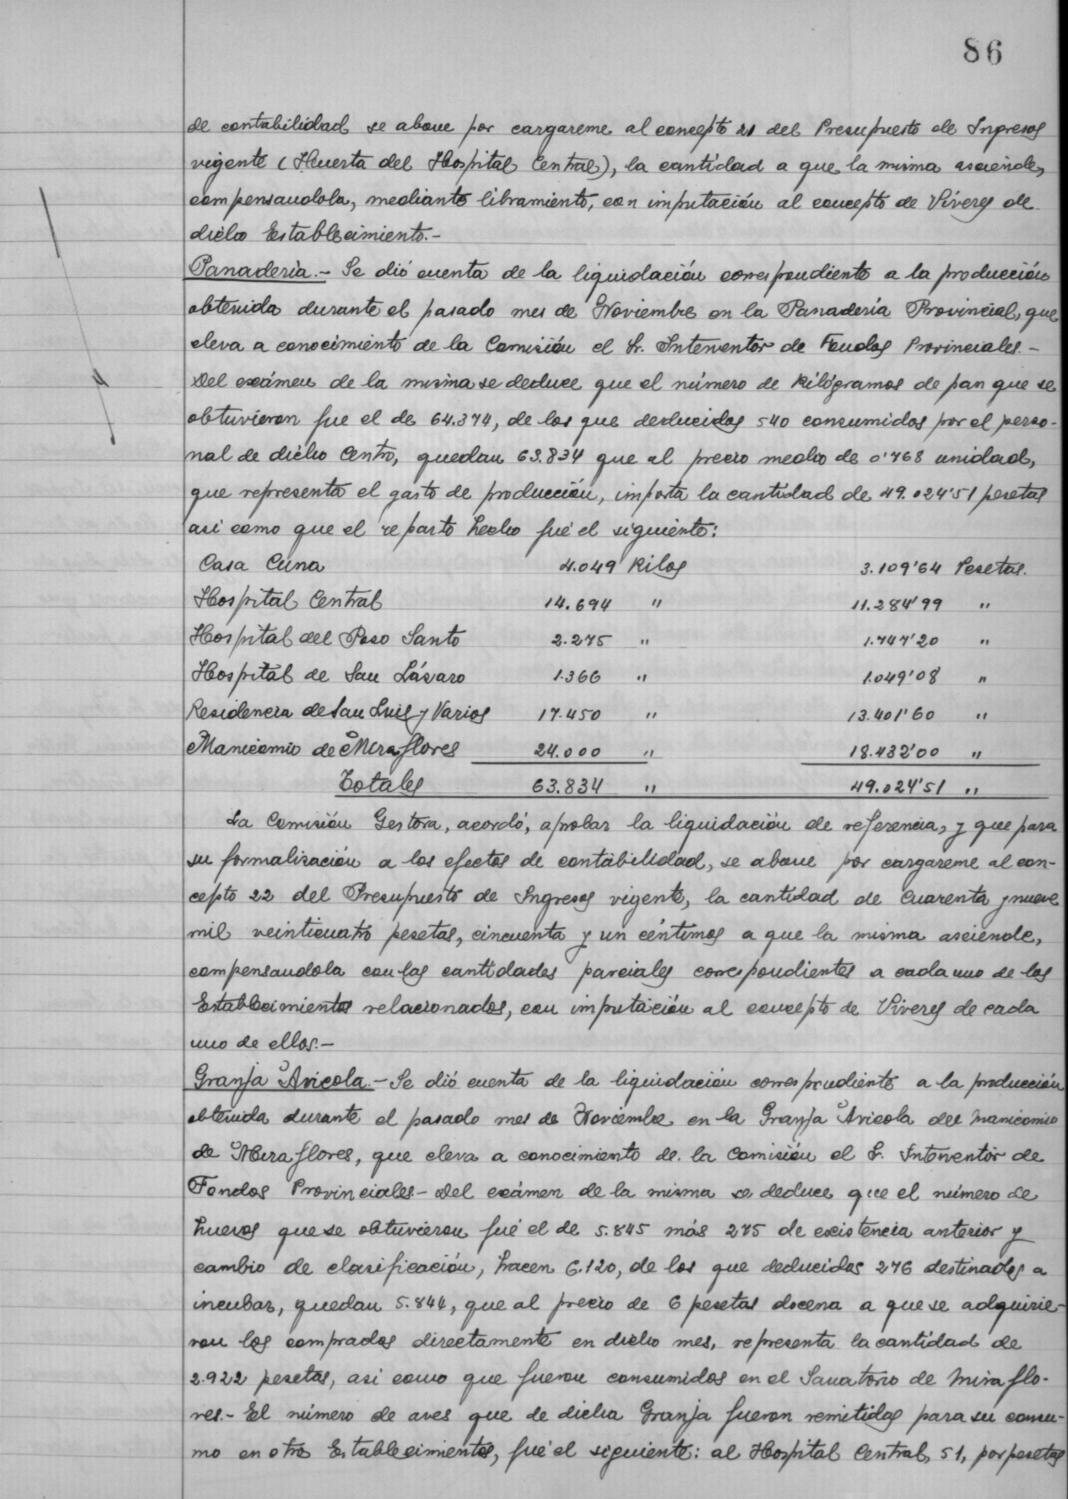 86
de contabilidad se abone por cargareme al concepto 21 del Presupuesto de Ingresos
vigente (Huerta del Hospital Central), la cantidad a que la misma asciende,
compensandola, mediante libramiento, con imputación al concepto de Víveres de
dicho Establecimiento.-
Panadería.- Se dió cuenta de la liquidación correspondiente a la producción
obtenida durante el pasado mes de Noviembre en la Panadería Provincial, que
eleva a conocimiento de la Comisión el Sr. Interventor de Fondos Provinciales.-
Del exámen de la misma se deduce que el número de kilógramos de pan que se
obtuvieron fue el de 64.374, de los que deducidos 540 consumidos por el perso-
nal de dicho Centro, quedan 63.834 que al precio medio de 0'768 unidad,
que representa el gasto de producción, importa la cantidad de 49.024'51 pesetas
asi como que el reparto hecho fué el siguiente:
Casa Cuna 4.049 Kilos 3.109'64 Pesetas.
Hospital Central 14.694 " 11.284'99 "
Hospital del Pozo Santo 2.275 " 1.747'20 "
Hospital de San Lázaro 1.366 " 1.049'08 "
Residencia de San Luis y Varios 17.450 " 13.401'60 "
Manicomio de Miraflores 24.000 " 18.432'00 "
Totales 63.834 " 49.024'51 "
La Comisión Gestora, acordó, aprobar la liquidación de referencia, y que para
su formalización a los efectos de contabilidad, se abone por cargareme al con-
cepto 22 del Presupuesto de Ingresos vigente, la cantidad de cuarenta y nueve
mil veinticuatro pesetas, cincuenta y un céntimos a que la misma asciende,
compensandola con las cantidades parciales correspondientes a cada uno de los
Establecimientos relacionados, con imputación al concepto de Víveres de cada
uno de ellos.-
Granja Avicola.- Se dió cuenta de la liquidación correspondiente a la producción
obtenida durante el pasado mes de Noviembre en la Granja Avicola del Manicomio
de Miraflores, que eleva a conocimiento de la Comisión el S. Interventor de
Fondos Provinciales.- Del exámen de la misma se deduce que el número de
huevos que se obtuvieron fué el de 5.845 más 275 de existencia anterior y
cambio de clasificación, hacen 6.120, de los que deducidos 276 destinados a
incubar, quedan 5.844, que al precio de 6 pesetas docena a que se adquirie-
ron los comprados directamente en dicho mes, representa la cantidad de
2.922 pesetas, asi como que fueron consumidos en el Sanatorio de Miraflo-
res.- El número de aves que de dicha Granja fueron remitidas para su consu-
mo en otros Establecimientos, fué el siguiente: al Hospital Central, 51, por pesetas